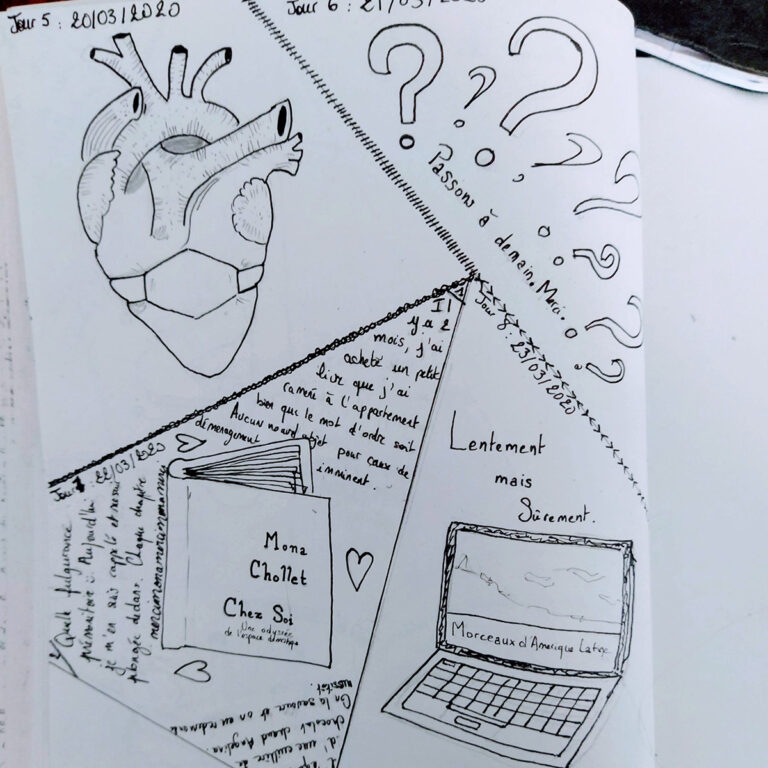 Jour 5 : 20/03/2020
Jour 6 : 21/03/2020
Passons à demain. Merci.
Il
y a 2
mois, j'ai
acheté un petit
livre que j'ai
ramené à l'appartement
bien que le mot d'ordre soit
Aucun nouvel objet pour cause de
déménagement imminent.
Jour 7 : 22/03/2020
Quelle fulgurance
prémonitoire ! Aujourd'hui
je m'en suis rappelé et
plongée dedans. Chaque chapitre
mercimonamercimonamercimona
Mona
Chollet
Chez Soi
Une odyssée
de l'espace domestique
d'une cuillère de
chocolat chaud
On la savoure et on en redemande
aussitôt.
Jour 8 : 23/03/2020
Lentement
mais
Sûrement.
Morceaux d'Amérique Latine